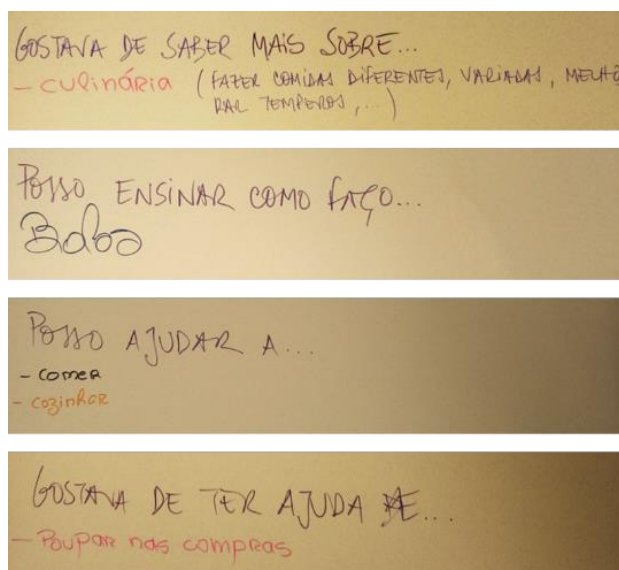 GOSTAVA DE SABER MAIS SOBRE...
- CULINÁRIA (FAZER COMIDAS DIFERENTES, VARIADAS, MELHO
RAR TEMPEROS, ...)
POSSO ENSINAR COMO FAÇO...
Bolos
POSSO AJUDAR A...
- comer
- cozinhar
GOSTAVA DE TER AJUDA ...
- Poupar nas compras